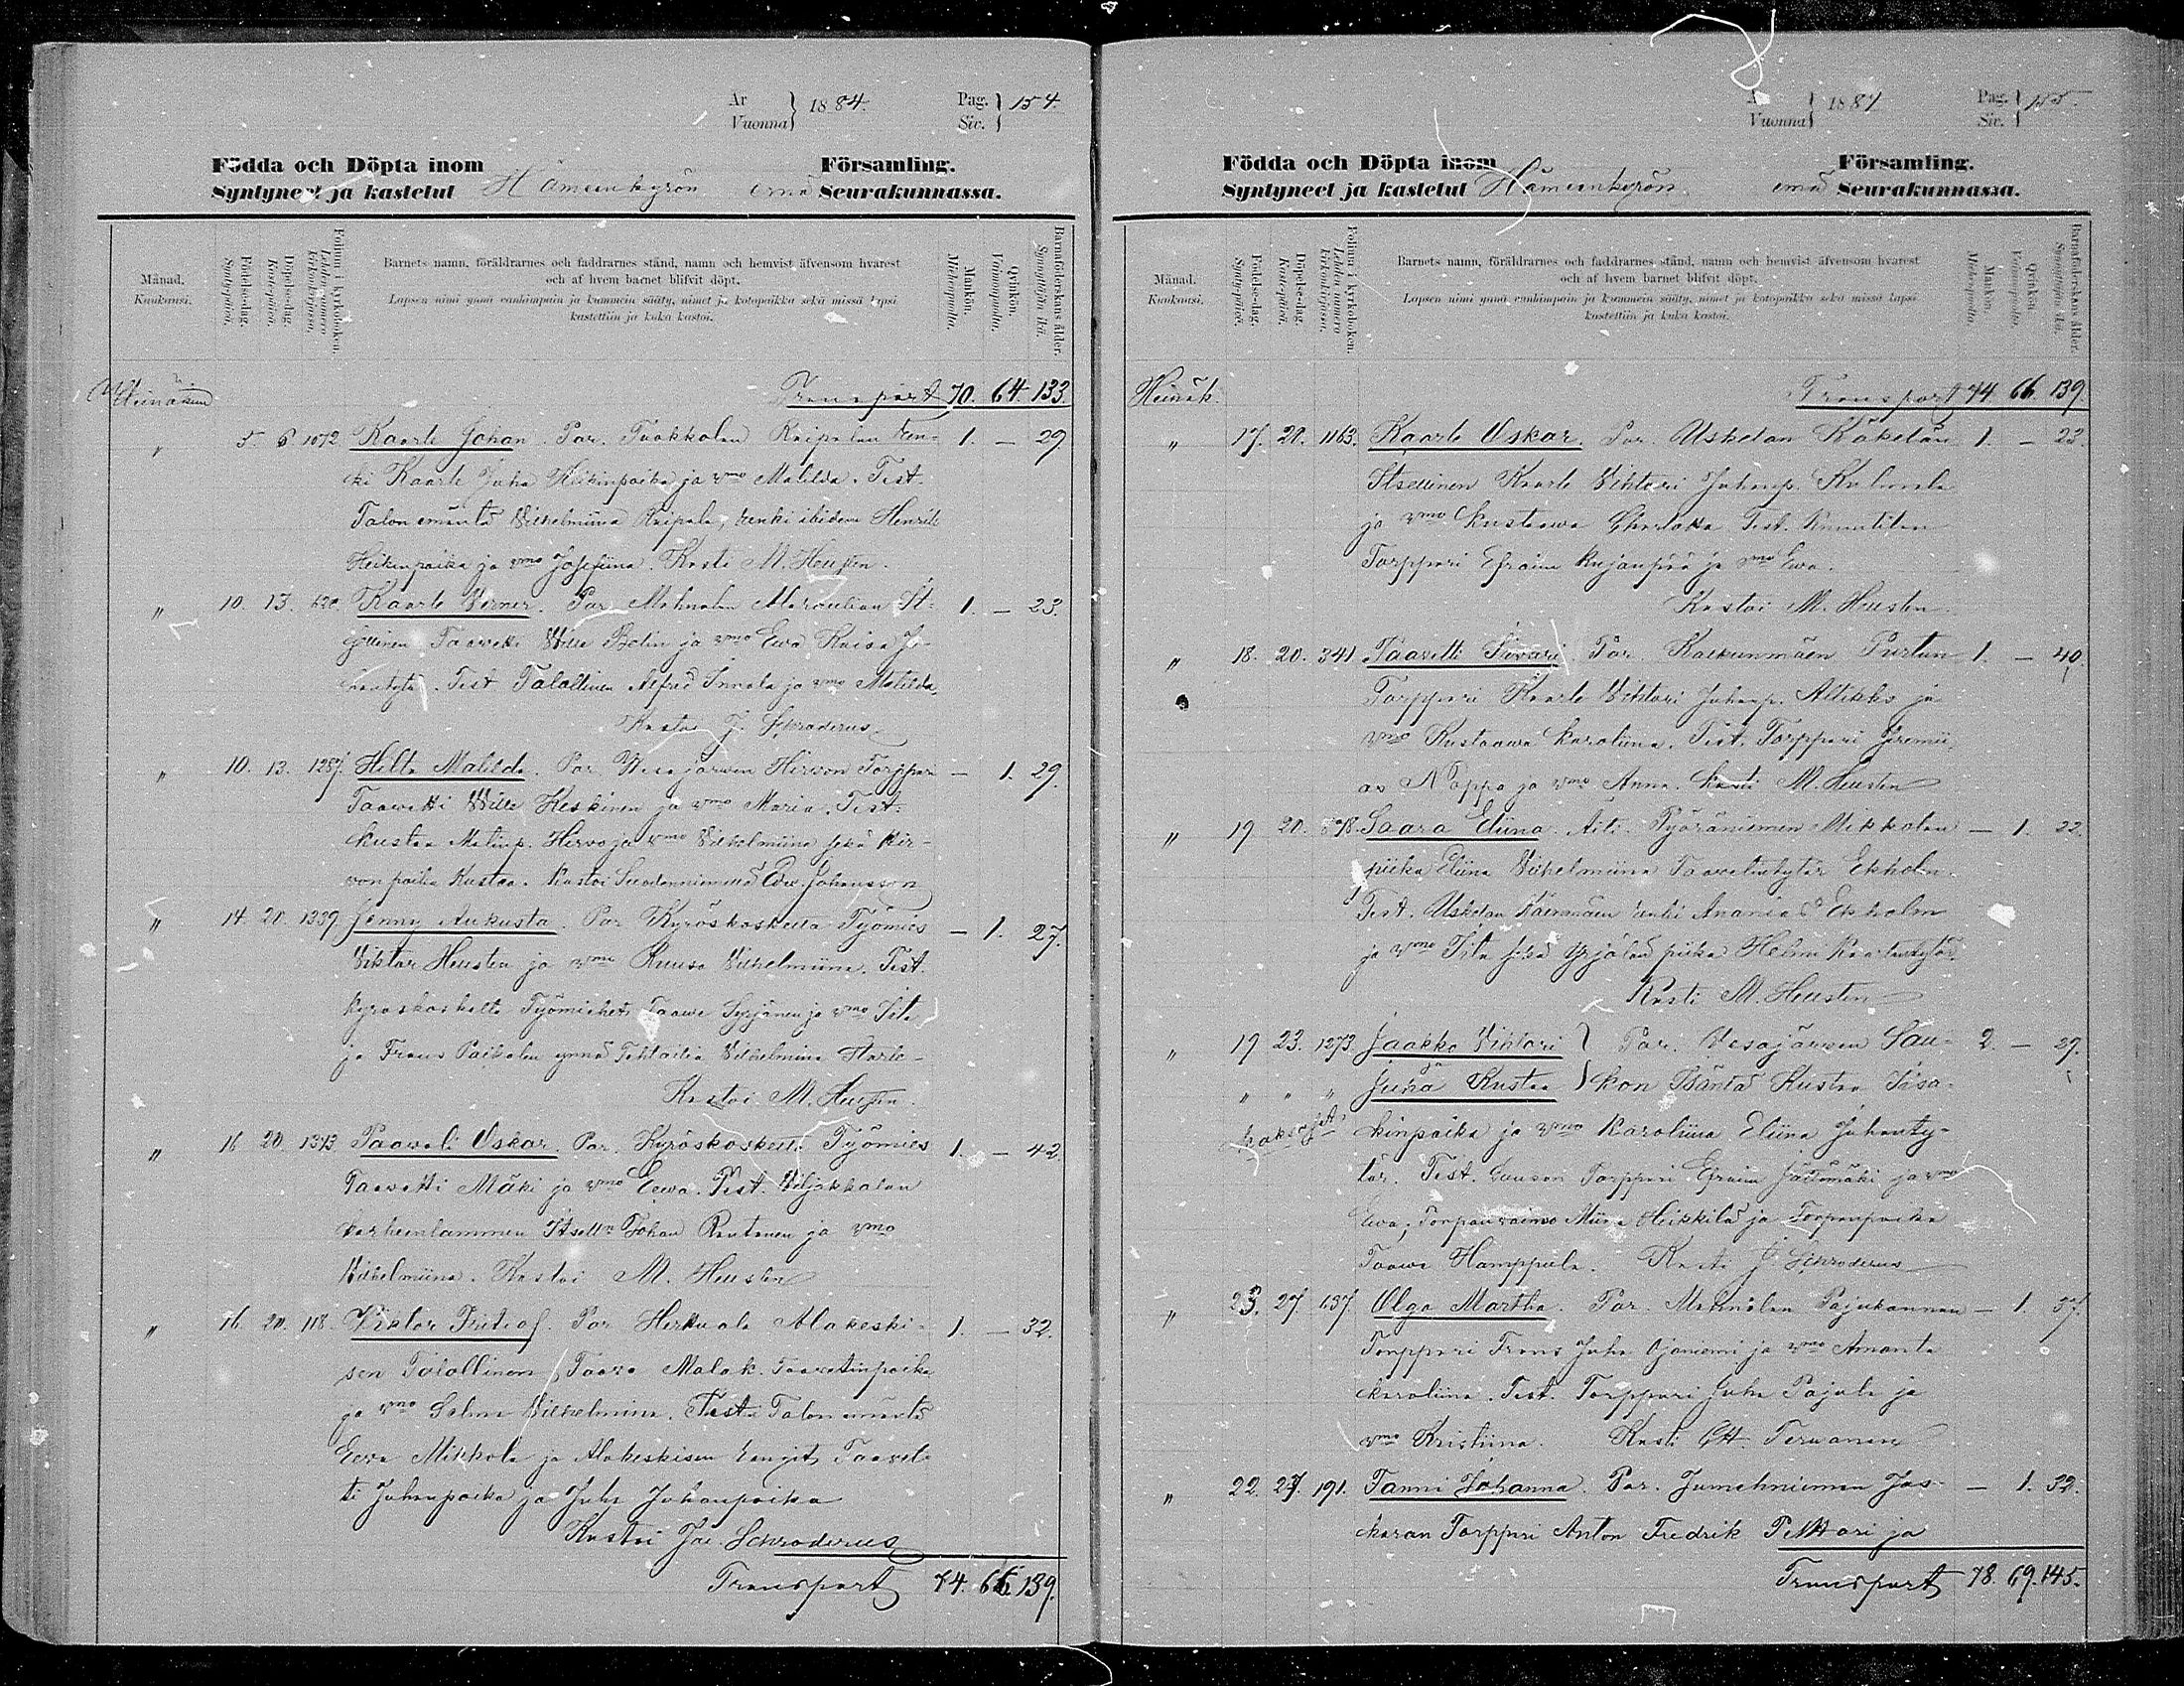 År
Vuonna } 1884.
Pag.
Siv. } 154.
Födda och Döpta inom Församling.
Syntyneet ja kastetut Hämeenkyrön emä Seurakunnassa.
Månad.
Kuukausi.
Födelse-dag.
Synty-päivä.
Döpelse-dag.
Kaste-päivä.
Folium i kyrkoboken.
Lehden numero kirkonkirjassa.
Barnets namn, föräldrarnes och faddrarnes stånd, namn och hemvist äfvensom hvarest
och af hvem barnet blifvit döpt.
Lapsen nimi ynnä vanhimpain ja kummein sääty, nimet ja kotopaikka sekä missä lapsi
kastettiin ja kuka kastoi.
Mankön.
Miehenpuolta.
Qvinkön.
Vaimonpuolta.
Barnaföderskans ålder.
Synnyttäjän ikä.
Heinäkuu Transport 70. 64. 133.
" 5. 6 1072 Kaarle Johan. Par. Tuokkolan Raipalan ren- 1. — 29.
ki Kaarle Juha Heikinpoika ja vmo Matilda. Test.
Talon emäntä Vilhelmiina Raipala, renki ibidem Henrik
Heikinpoika ja vmo Josefiina. Kasti M. Heusten.
" 10. 13. 620. Kaarle Verner. Par. Mahnalan It- 1. — 23.
sellinen Taavetti Wille Bolin ja vmo Ewa Kaisa Ju-
hantytär. Test Talollinen Alfred Innala ja vmo Matilda
Kastoi J. Schroderus
" 10. 13. 1287. Hilta Matilda. Par. Wesajärwen Hirvon Torppari — 1. 29.
Taawetti Wille Keskinen ja vmo Maria. Test.
Kustaa Matinp. Hirvo ja vmo Vilhelmiina sekä Hir-
von poika Kustaa. Kastoi Edv. Johansson
" 14. 20. 1339 Jenny Aukusta. Par Kyröskoskella Työmies — 1. 27.
Viktor Heusten ja vmo Ruusa Vilhelmiina. Test.
Kyröskoskelta Työmiehet Taawe Syrjänen ja vmo Iita
ja Frans Paikalan ynnä Vilhelmiina
Kastoi M. Heusten.
" 16 20. 1343 Paavali Oskar. Par. Kyröskoskella Työmies 1. — 42.
Taavetti Mäki ja vmo Eewa. Test. Viljakkalan
Karheenlammen Itselln Johan Rantanen ja vmo
Vilhelmiina. Kastoi M. Heusten
" 16 20. 118. Viktor Fritiof. Par Herttuala Alakeski- 1. — 32.
sen Talollinen Taavo Malak. Taavetinpoika
ja vmo Selma Vilhelmiina. Test. Talon emäntä
Eeva Mikkola ja Alakeskisen rengit Taavet-
ti Juhanpoika ja Juha Juhanpoika
Kastoi Joe. Schroderus
Transport 74. 66. 139.
År
Vuonna } 1884
Pag.
Siv. } 155.
Födda och Döpta inom Församling.
Syntyneet ja kastetut Hämeenkyrön emä Seurakunnassa.
Månad.
Kuukausi.
Födelse-dag.
Synty-päivä.
Döpelse-dag.
Kaste-päivä.
Folium i kyrkoboken.
Lehden numero kirkonkirjassa.
Barnets namn, föräldrarnes och faddrarnes stånd, namn och hemvist äfvensom hvarest
och af hvem barnet blifvit döpt.
Lapsen nimi ynnä vanhimpain ja kummein sääty, nimet ja kotopaikka sekä missä lapsi
kastettiin ja kuka kastoi.
Mankön.
Miehenpuolta.
Qvinkön.
Vaimonpuolta.
Barnaföderskans ålder.
Synnyttäjän ikä.
Heinäk. Transport 74. 66. 139
" 17. 20. 1163. Kaarle Oskar. Par. Uskelan Käkelän 1. — 23.
Itsellinen Kaarle Vihtori Juhanp. Kulmala
ja vmo Kustaava Charlotta Test.
Torppari Efraim Kujanpää ja vmo Ewa.
Kastoi M. Heusten.
" 18. 20. 341 Taavetti Siivari. Par. Kalkunmäen Purtun 1. — 40.
Torppari Kaarle Vihtori Juhanp. Attikko ja
vmo Kustaawa Karoliina. Test. Torppari Jeremi-
as Noppa ja vmo Anna. Kasti M. Heusten
" 19 20. 598. Saara Eliina. Äiti. Pyöräniemen Mikkolan — 1. 22.
piika Eliina Vilhelmiina Taavetintytär Ekholm.
Test. Uskelan renki Ananias Ekholm
ja vmo Iita sekä Yrjölän piika Helmi Kaarlentytär
Kasti M. Heusten
" 19 23. 1273. Jaakko Vihtori } Par. Vesajärven Sau- 2. — 29.
ja
" " " Juha Kustaa } kon Isäntä Kustaa Iisa-
kaksoset kinpoika ja vmo Karoliina Eliina Juhanty-
tär. Test. Torppari Efraim ja vmo
Ewa, Torpanvaimo Miina Heikkilä ja Torpanpoika
Taawe Hamppula. Kasti J. Schroderus
" 23. 27. 637. Olga Martha. Par. Mahnalan Pajukannan — 1. 37.
Torppari Frans Juha Ojaniemi ja vmo Amanta
Karoliina. Test. Torppari Juha Pajula ja
vmo Kristiina. Kasti Terwanen
" 22. 27. 191. Fanni Johanna. Par. Jumehniemen Jas- — 1. 32.
karan Torppari Anton Fredrik Pettari ja
Transport 78. 69. 145.